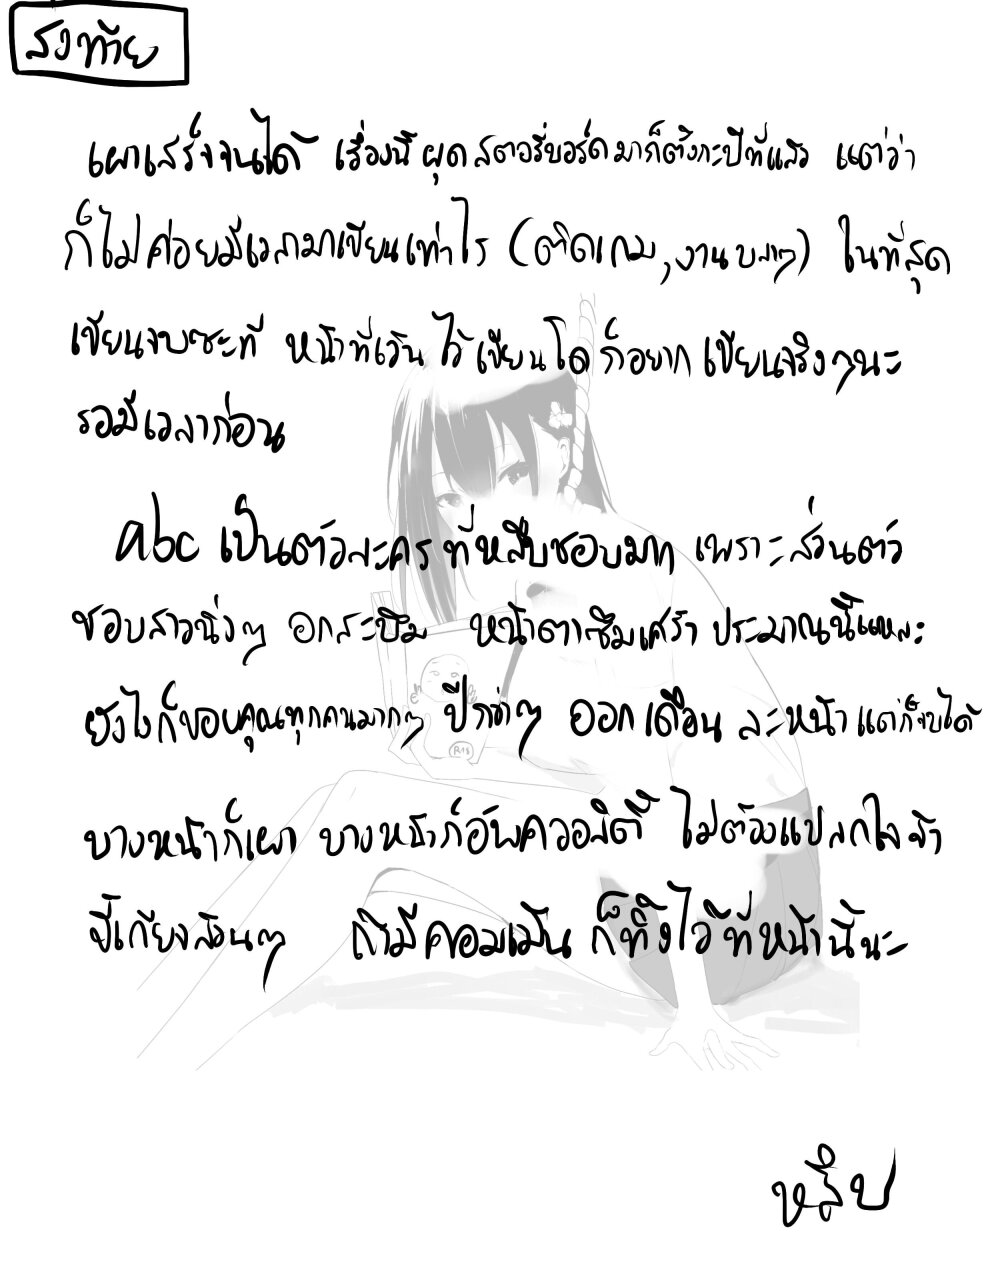 ส่งท้าย
เผาเสร็จจนได้ เรื่องนี้ผุดสตอรี่บอร์ดมาก็ตั้งกะปีที่แล้ว แต่ว่า
ก็ไม่ค่อยมีเวลามาเขียนเท่าไร (ติดเกม, งานบลาๆ) ในที่สุด
เขียนจบซะที หน้าที่เว้นไว้เขียนโด ก็อยากเขียนจริงๆนะ
รอมีเวลาก่อน
abc เป็นตัวละครที่หลีบชอบมาก เพราะส่วนตัว
ชอบสาวนิ่งๆ อกสะบึม หน้าตาซึมเศร้า ประมาณนี้แหละ
ยังไงก็ขอบคุณทุกคนมากๆ ปีกว่าๆ ออกเดือนละหน้าแต่ก็จบได้
บางหน้าก็เผา บางหน้าก็อัพควอลิตี้ ไม่ต้องแปลกใจจ้า
ขี้เกียจล้วนๆ ถ้ามีคอมเม้น ก็ทิ้งไว้ที่หน้านี้นะ
R18
หลีบ